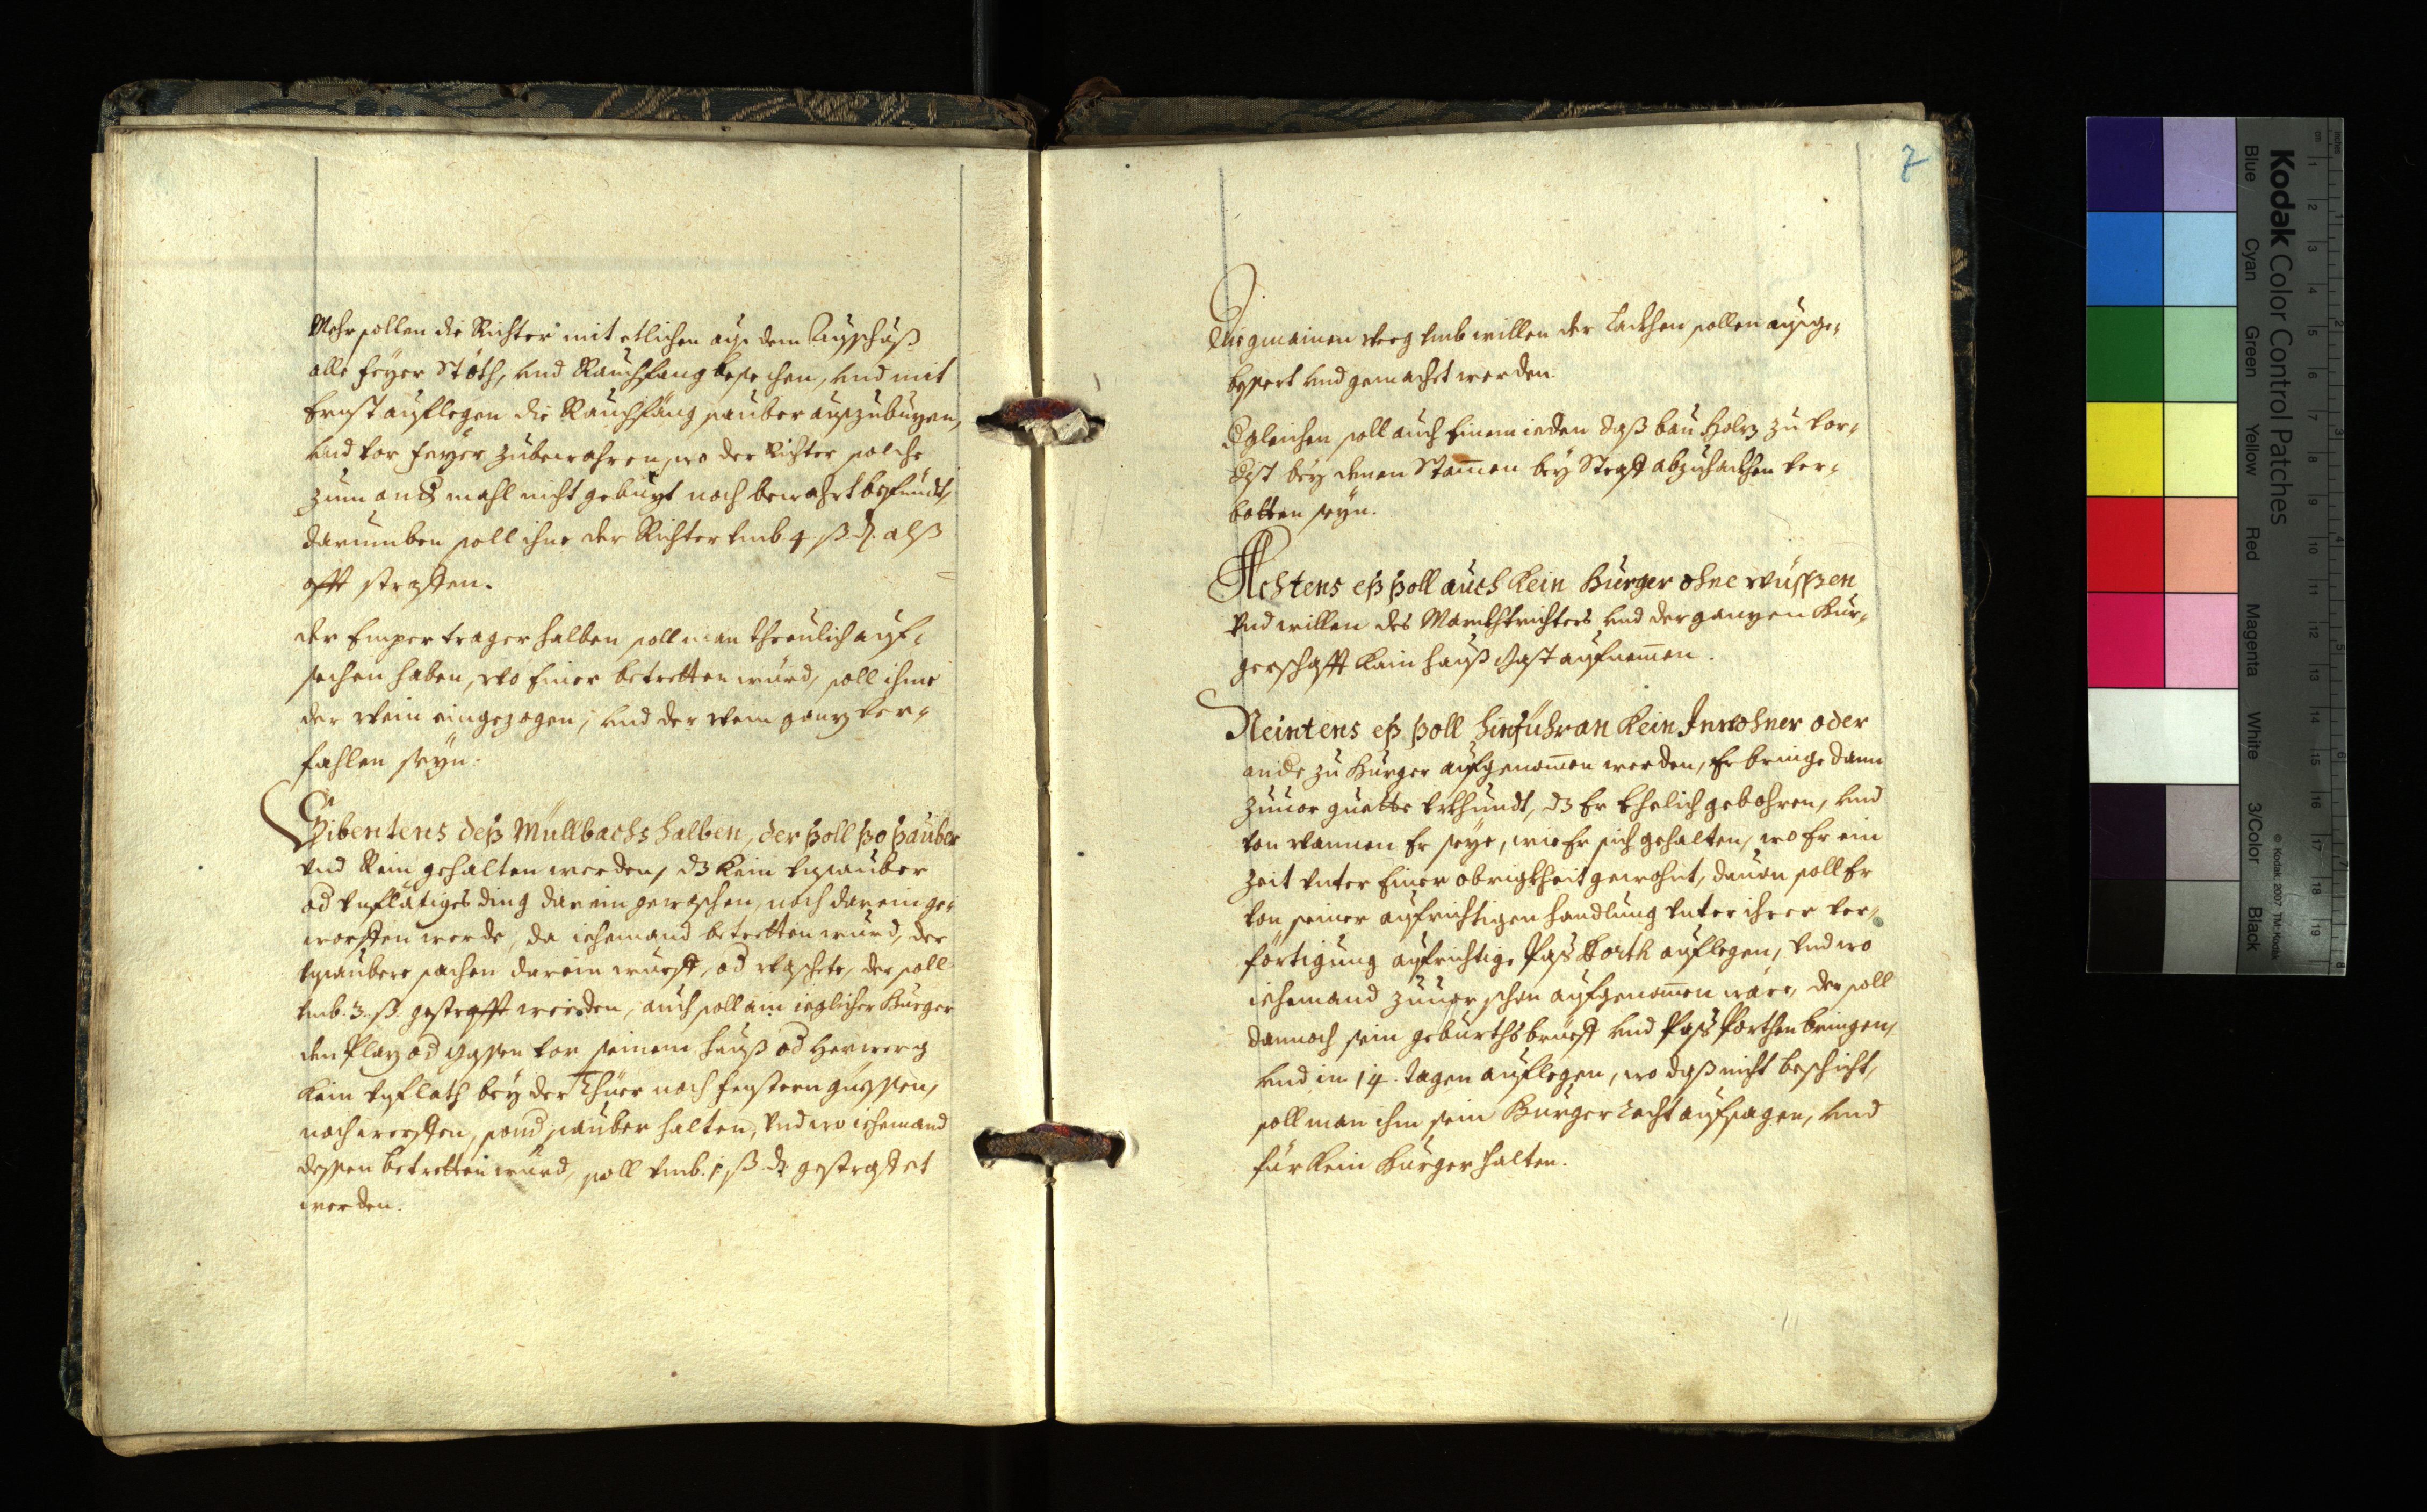 Mehr sollen die Richter mit etlichen auß dem Außschuß
alle feyer Stött, vnd Rauchfang besechen, vnd mit
Ernst aufflegen die Rauchfäng sauber außzubuzen,
vnd vor feyer zubewahren, wo der Richter solche
zum and mahl nicht gebuzt noch bewahrt befindt,
darumben soll ihne der Richter vmb 4 ß d. alß
offt straffen.
der Emper trager halben soll man threulich auf-
sechen haben, wo Einer betretten wurd, soll ihme
der Wein eingezogen, vnd der Wein ganz ver-
fahlen seyn.
Sibentens deß Müllbachs halben, der soll so sauber
vnd Rein gehalten werden, dz kein vnsauber
od vnflätiges ding darein gewaschen, noch darein ge-
worffen werde, da iehemand betretten wurd, der
vnsaubere sachen darein wurff, od waschete, der soll
vmb 3 ß gestrafft werden, auch soll ein ieglicher Burger
den Plaz od gassen vor seinem hauß od herwerg
kein vnflath bey der Thüer noch fenstern güessen,
noch werffen, sond sauber halten, vnd wo iehemand
dessen betretten wurd, soll vmb 1 ß d gestraffet
werden.
7
Die gmainen weeg vmb willen der Lackhen sollen außge-
bessert vnd gemacht werden.
Dgleichen soll auch Einem ieden daß bau holz zu vor-
dist bey denen Stamen bey Straff abzuhackhen ver-
botten seyn.
Achtens eß soll auch kein Burger ohne wüssen
vnd willen des Marckhtrichters vnd der ganzen Bur-
gerschafft kein hauß Gast aufnemen.
Neintens eß soll hinführan kein Inwohner oder
ander zu Burger aufgenomen werden, Er bringe dann
zuuor guette vrkhundt, dz Er Ehelich gebohren, vnd
von wannen Er seye, wie Er sich gehalten, wo Er ein
zeit vnter Einer obrigkheit gewohnt, dauon soll Er
von seiner aufrichtigen handlung vnter ihrer ver-
förtigung aufrichtige Paß Porth auflegen, vnd wo
iehemand zuuor schon aufgenomen wäre, der soll
dannoch sein geburthsbrieff vnd Paß Porthen bringen,
vnd in 14. tagen auflegen, wo daß nicht beschicht,
soll man ihm sein Burger recht aufsagen, vnd
für kein Burger halten.
Kodak Color Control Patches
Blue Cyan Green Yellow Red Magenta White 3/Color Black
© Kodak, 2007 TM: Kodak